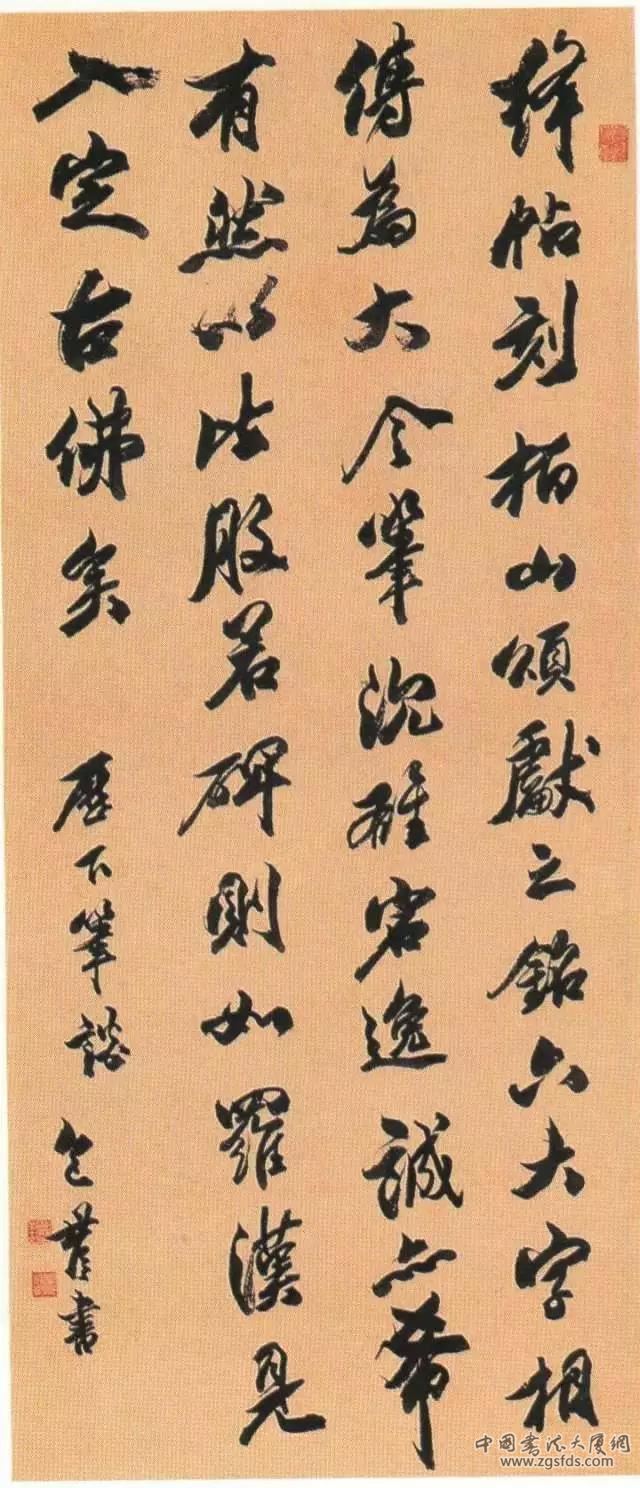 絳帖刻栢山頌獻之銘六大字相
傳為大令筆沉雄宕逸誠亦希
有然以比般若碑則如羅漢見
入定古佛矣 歷下筆談 包世臣書
中國書法大廈網
www.zgsfds.com